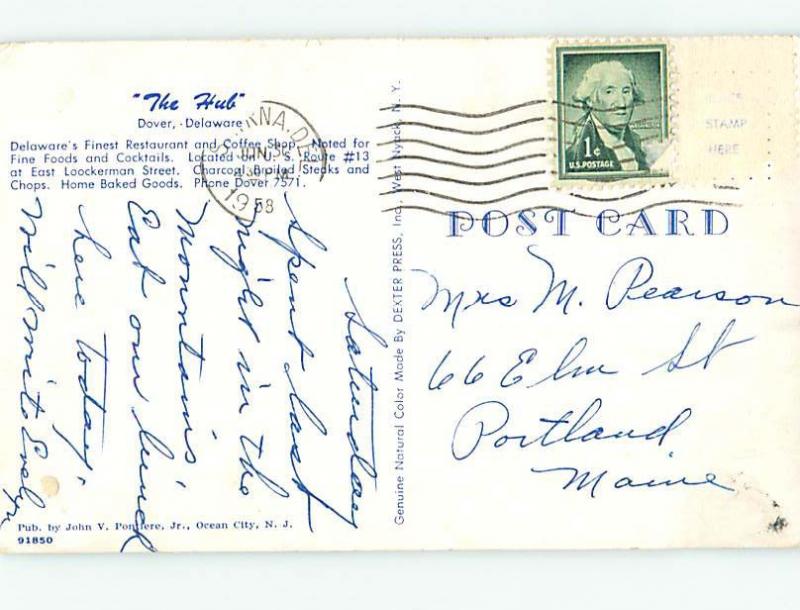 "The Hub"
Dover, Delaware
Delaware's Finest Restaurant and Coffee Shop. Noted for
Fine Foods and Cocktails. Located on U. S. Route #13
at East Loockerman Street. Charcoal Broiled Steaks and
Chops. Home Baked Goods. Phone Dover 7571.
Saturday
Spent last
night in the
Mountains
Eat our lunch
here today.
Will write Evelyn
Pub. by John V. Pontiere, Jr., Ocean City, N. J.
91850
Genuine Natural Color Made By DEXTER PRESS, Inc., West Nyack, N. Y.
JUN
1958
1¢
U.S. POSTAGE
STAMP
HERE
POST CARD
Mrs M. Pearson
66 Elm St
Portland
Maine